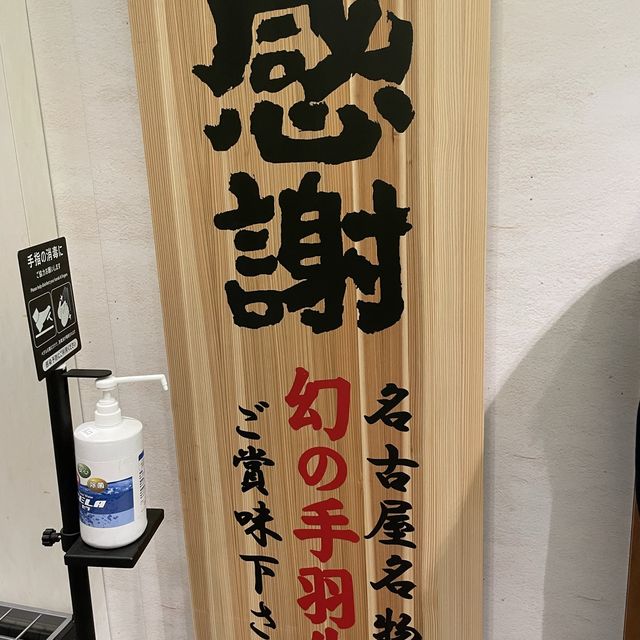 感謝
名古屋名物
幻の手羽
ご賞味下さ
手指の消毒に
ご協力お願いします
ELA